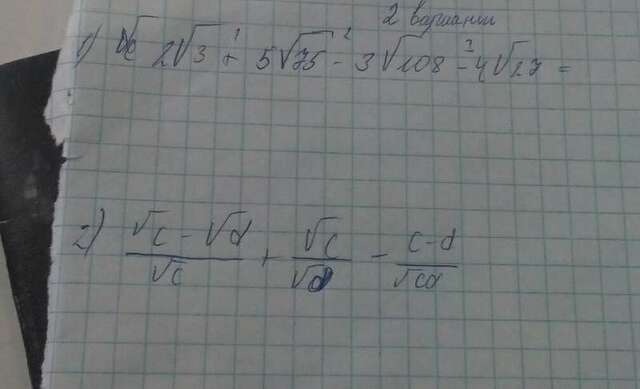 2 вариант
1) 2√3 + 5√75 - 3√108 - 4√27 =
2) (√c - √d)/√c + √c/√d - (c-d)/√cd